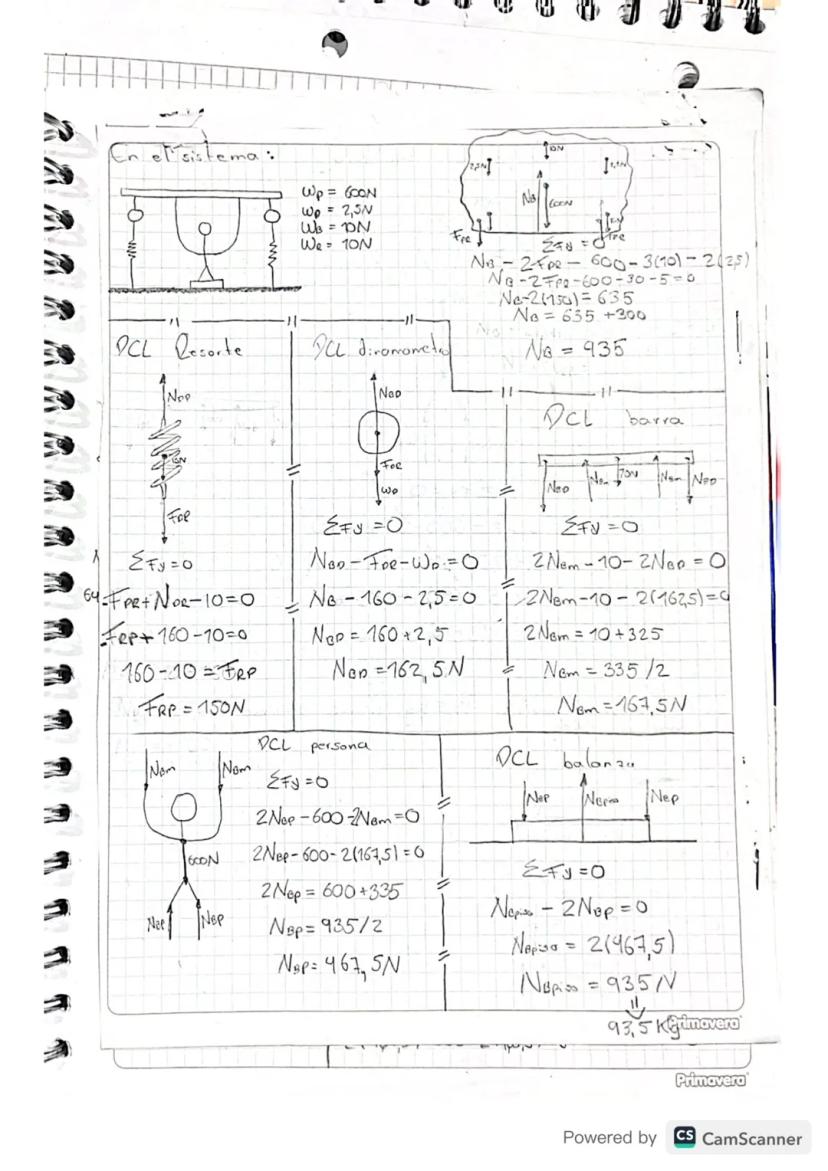 En el sistema:
Wp = 600N
WD = 2,5N
WB = 10N
WR = 10N
10N
2,5N
NB
600N
FPR
FPR
ΣFy = 0
NB - 2FPR - 600 - 3(10) - 2(2,5)
NB - 2FPR - 600 - 30 - 5 = 0
NB - 2(150) = 635
NB = 635 + 300
NB = 935
DCL Resorte
10N
ΣFy = 0
-FPR + NDR - 10 = 0
-FRP + 160 - 10 = 0
160 - 10 = FRP
FRP = 150N
DCL dinamometro
NBD
FDR
WD
ΣFy = 0
NBD - FDR - WD = 0
NB - 160 - 2,5 = 0
NBD = 160 + 2,5
NBD = 162,5N
DCL barra
NBD
NBm
NBm
NBD
ΣFy = 0
2NBm - 10 - 2NBD = 0
2NBm - 10 - 2(162,5) = 0
2NBm = 10 + 325
NBm = 335/2
NBm = 167,5N
DCL persona
NBm
NBm
600N
NBP
NBP
ΣFy = 0
2NBP - 600 - 2NBm = 0
2NBP - 600 - 2(167,5) = 0
2NBP = 600 + 335
NBP = 935/2
NBP = 467,5N
DCL balanza
NBP
NBpiso
NBP
ΣFy = 0
NBpiso - 2NBP = 0
NBpiso = 2(467,5)
NBpiso = 935N
93,5 Kg
Primavera
Primavera
Powered by CS CamScanner